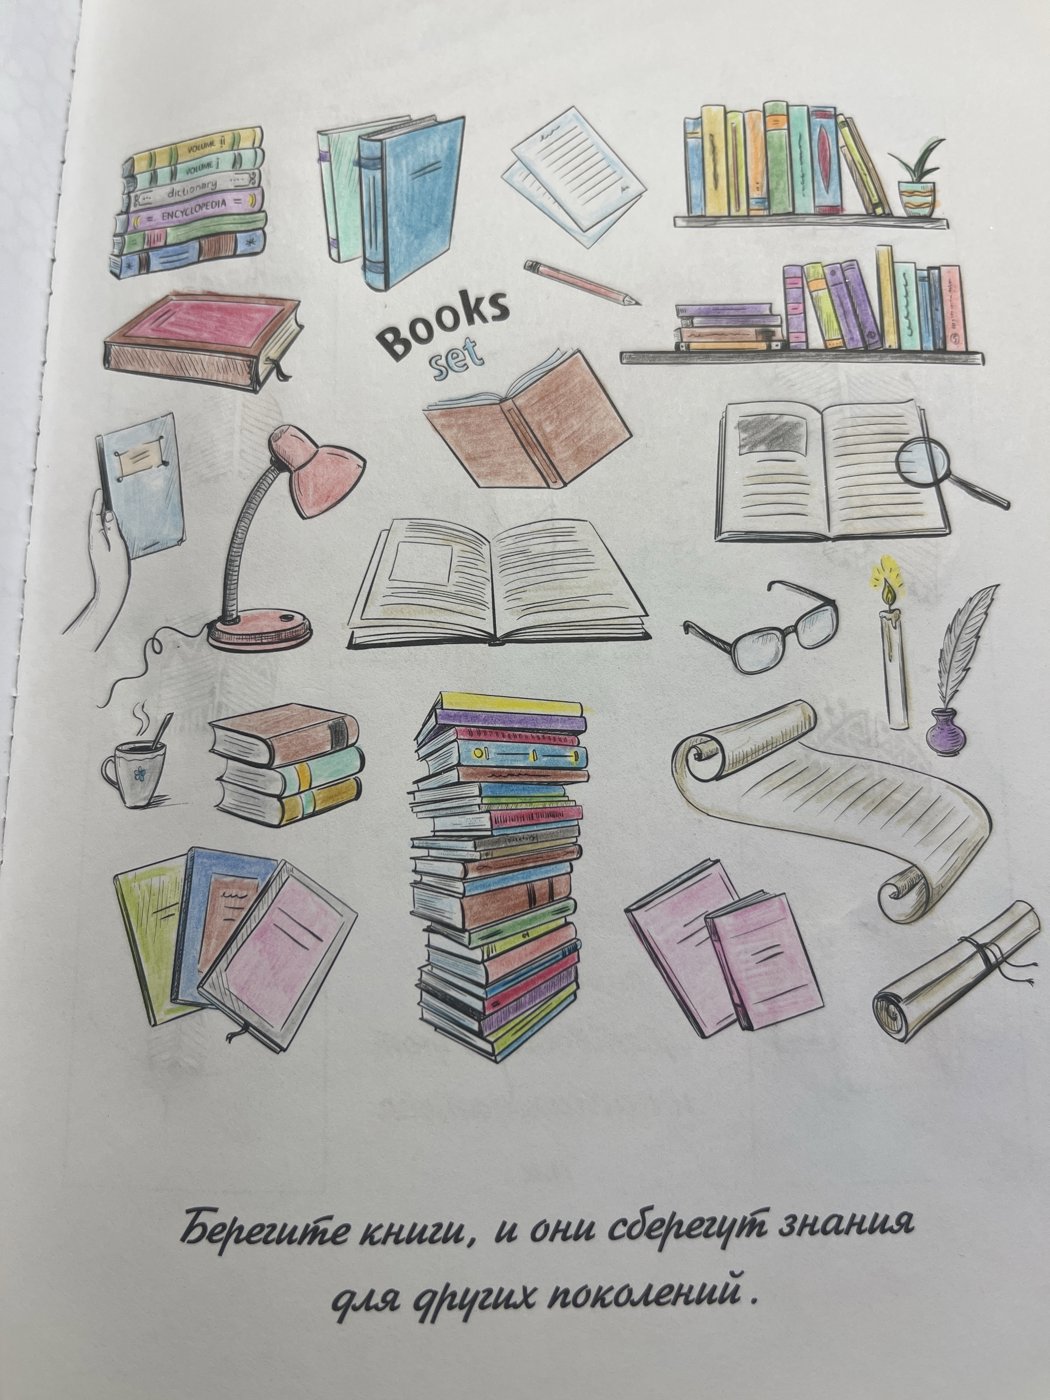 VOLUME ii
VOLUME i
dictionary
ENCYCLOPEDIA
Books
set
Берегите книги, и они сберегут знания
для других поколений.